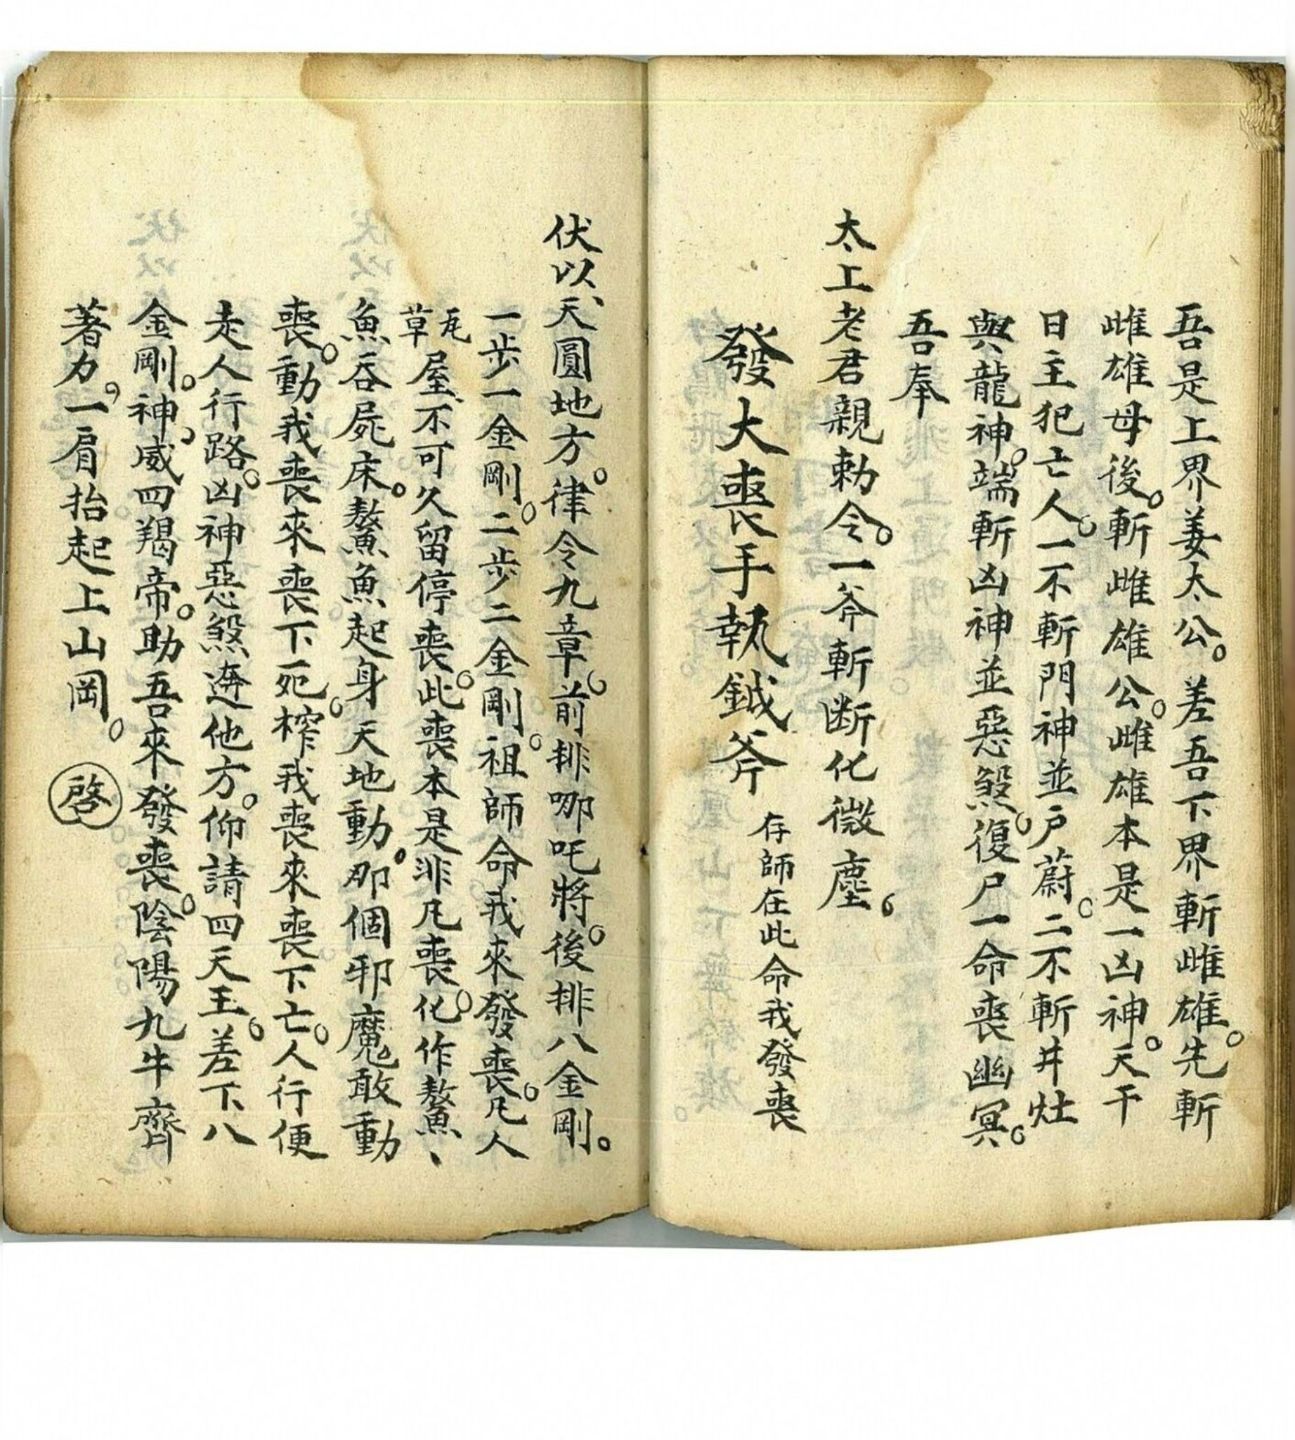 吾是上界姜太公。差吾下界斬雌雄。先斬
雌雄母後。斬雌雄公。雌雄本是一凶神。天干
日主犯亡人。一不斬門神並戶蔚。二不斬井灶
與龍神。端斬凶神並惡煞。復尸一命喪幽冥。
吾奉
太上老君親勅令。一斧斬断化微塵。
發大喪手執鉞斧 存師在此命我發喪
伏以、天圓地方。律令九章。前排哪吒將。後排八金剛。
一步一金剛。二步二金剛。祖師命我來發喪。凡人
瓦草屋、不可久留停喪。此喪本是非凡喪。化作鰲、
魚吞屍床。鰲魚起身天地動。那個邪魔敢動
喪。動我喪來喪下死。榨我喪來喪下亡。人行便
走人行路。凶神惡煞迯他方。仰請四天王。差下八
金剛。神威四揭帝。助吾來發喪。陰陽九牛齊
著力。一肩抬起上山岡。 啓